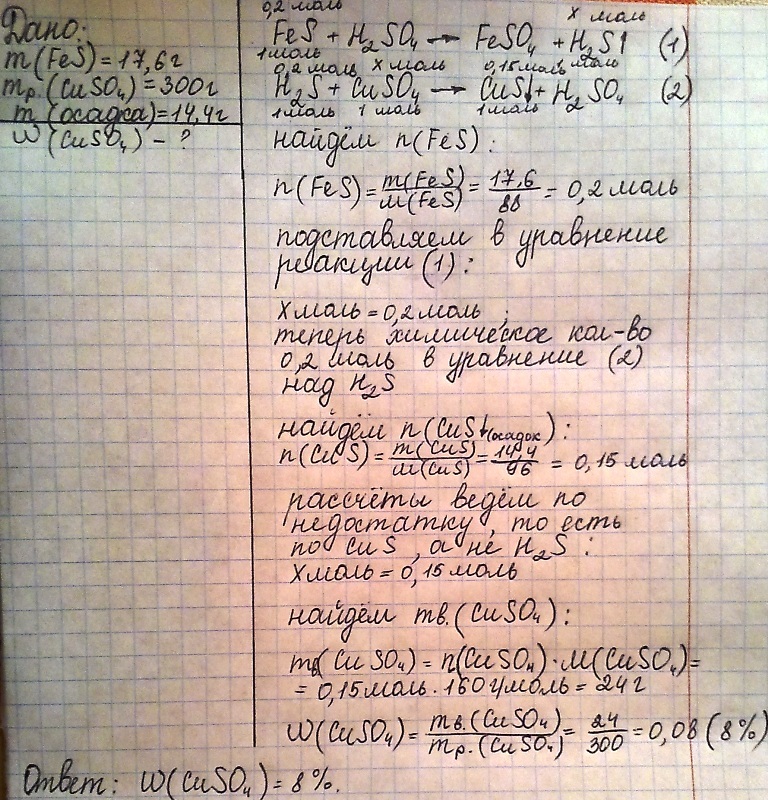 Дано:
m(FeS)=17,6г
mр.(CuSO₄)=300г
m(осадка)=14,4г
W(CuSO₄)-?
0,2 моль x моль
FeS + H₂SO₄ → FeSO₄ + H₂S↑ (1)
1моль 1 моль
0,2 моль x моль 0,15моль
H₂S + CuSO₄ → CuS↓ + H₂SO₄ (2)
1моль 1 моль 1моль
найдём n(FeS):
n(FeS)=m(FeS)/M(FeS)=17,6/88=0,2 моль
подставляем в уравнение
реакции (1):
Xмоль=0,2моль;
теперь химическое кол-во
0,2 моль в уравнение (2)
над H₂S
найдём n(CuS↓(осадок):
n(CuS)=m(CuS)/M(CuS)=14,4/96=0,15 моль
рассчёты ведём по
недостатку, то есть
по CuS, а не H₂S:
Xмоль=0,15моль
найдём mв.(CuSO₄):
mв(CuSO₄)=n(CuSO₄)·M(CuSO₄)=
=0,15моль·160г/моль=24г
W(CuSO₄)=mв.(CuSO₄)/mр.(CuSO₄)=24/300=0,08(8%)
Ответ: W(CuSO₄)=8%.